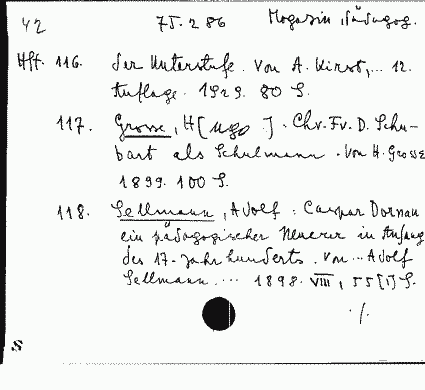 42 75.286 Magazin, Pädagog.
Hft. 116. der Unterstufe. Von A. Kirst,... 12.
Auflage. 1929. 80 S.
117. Grosse, H[ugo]. Chr. Fr. D. Schu-
bart als Schulmann. Von H. Grosse
1899. 100 S.
118. Sellmann, Adolf: Caspar Dornau
ein pädagogischer Neuerer in Anfang
des 17. Jahrhunderts. Von ... Adolf
Sellmann ... 1898. VIII, 55 [1] S.
./.
S